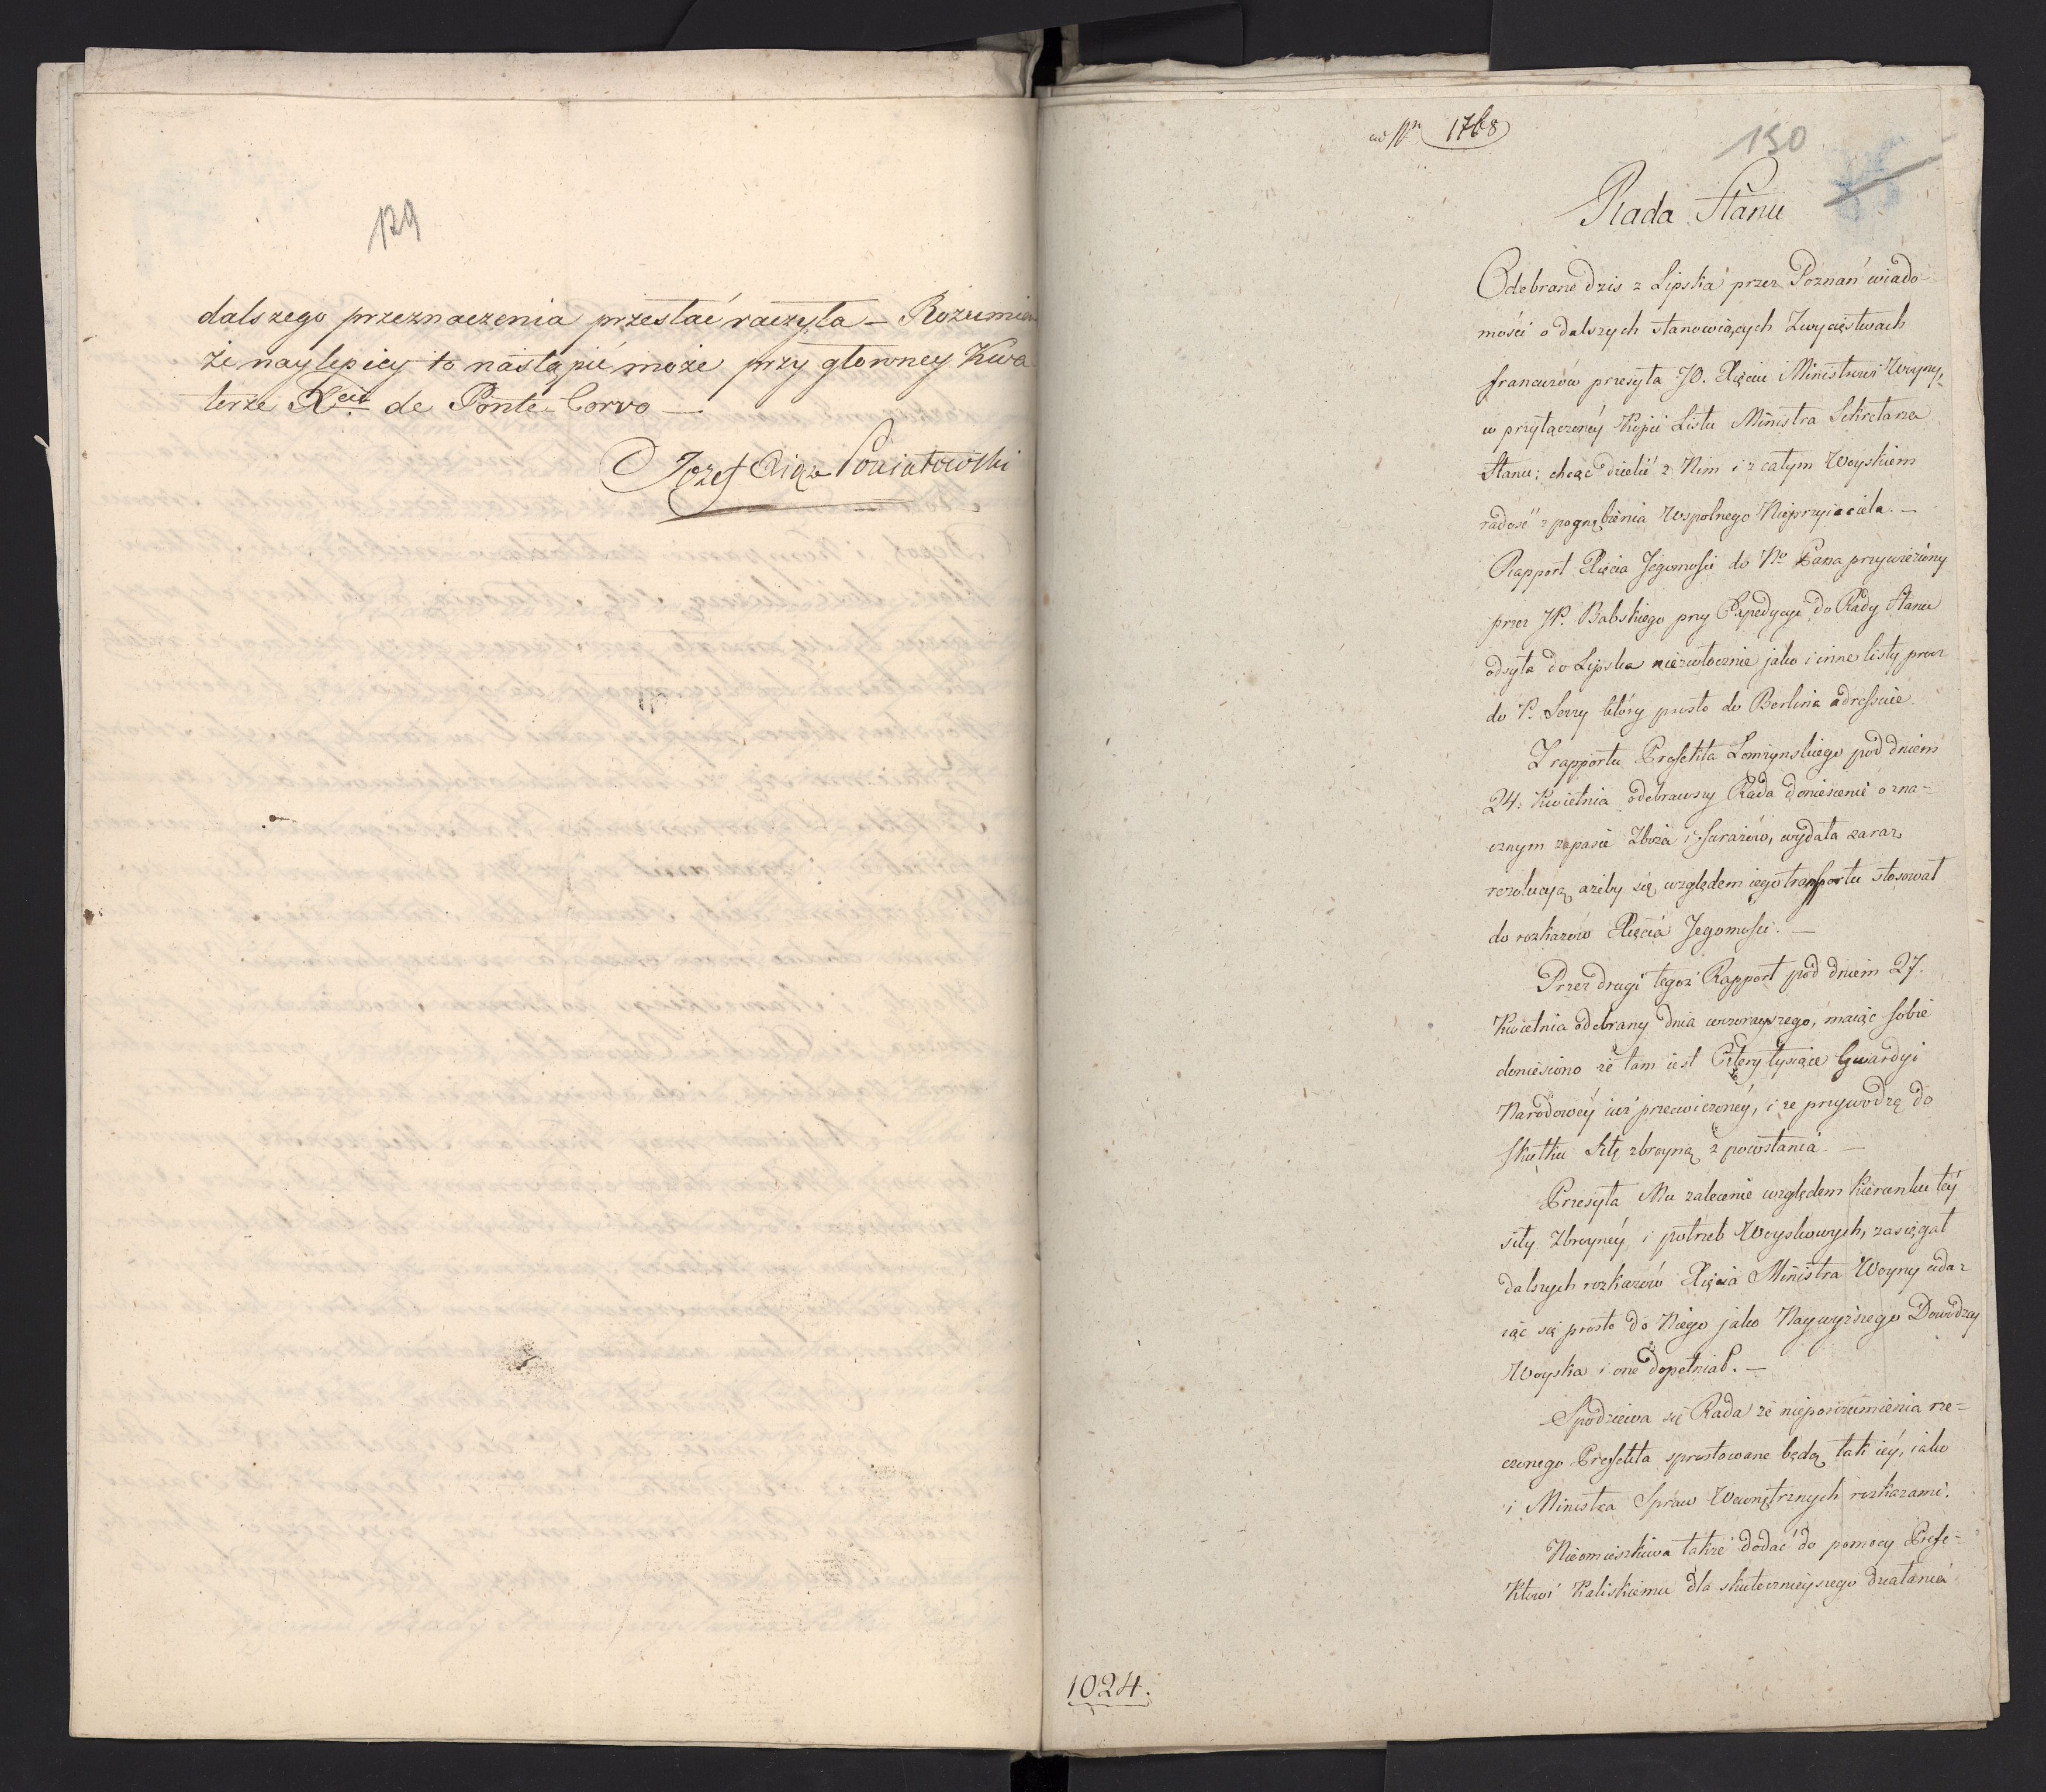 129
dalszego przeznaczenia przesłać raczyła – Rozumiem
że naylepiey to nastąpić może przy głowney Kwa
terze Xcia de Ponte-Corvo —
Jozef Xiąże Poniatowski
ad Nrm 1768
130
Rada Stanu
Odebrane dzis z Lipska przez Poznań wiado-
mości o dalszych stanowiących Zwycięstwach
francuzów przesyła JO. Xięciu Ministrowi Woyny,
w przyłączoney Kopii Listu Ministra Sekretarza
Stanu; chcąc dzielić z Nim i z całym Woyskiem
radość z pognębienia Wspolnego Nieprzyiaciela. —
Rapport Xięcia Jegomości do No Pana przywieziony
przez JP. Babskiego przy Expedycyi do Rady Stanu
odsyła do Lipska niezwłocznie jako i inne listy prócz
do P. Serry który prosto do Berlina adressuie.
Z rapportu Prefekta Łomżynskiego pod dniem
24. Kwietnia odebrawszy Rada doniesienie o zna=
cznym zapasie Zboża i furażów, wydała zaraz
rezolucyą ażeby się względem iego transportu stosował
do rozkazów Xięcia Jegomości. —
Przez drugi tegoż Rapport pod dniem 27.
Kwietnia odebrany dnia wczorayszego, maiąc sobie
doniesiono że tam iest Cztery tysiące Gwardyi
Narodowéy iuż przećwiczonéy, i że przywodzą do
skutku siłę zbroyną z powstania. —
Przesyła Mu zalecenie względem kierunku téy
siły Zbroynéy i potrzeb Woyskowych, zasięgał
dalszych rozkazów Xięcia Ministra Woyny uda=
iąc się prosto do Niego jako Naywyższego Dowódzcy
Woyska i one dopełniał. —
Spodziewa się Rada że nieporozumienia rze=
czonego Prefekta sprostowane będą tak iéy, iako
i Ministra Spraw Wewnętrznych rozkazami.
Nieomieszkiwa także dodać do pomocy Prefe=
ktowi Kaliskiemu dla skutecznieyszego działania
1024.